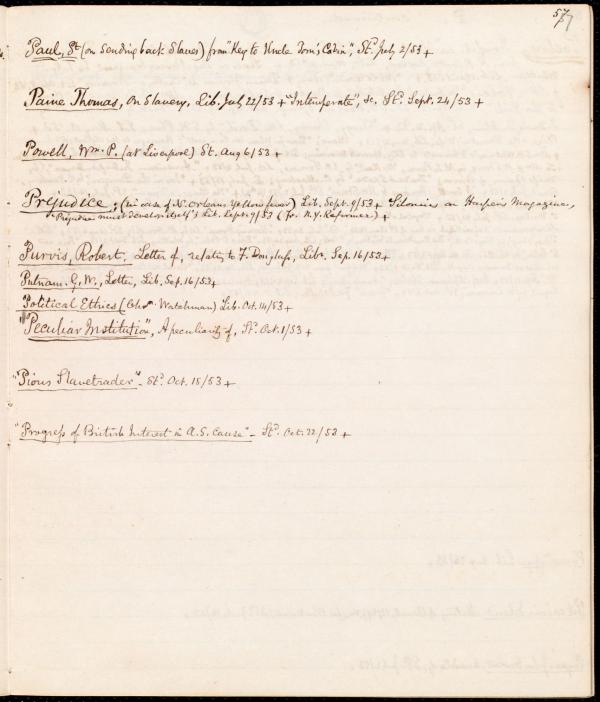 57
Paul, St. (on sending back Slaves) from "Key to Uncle Tom's Cabin", Std. July 2/53 +
Paine Thomas, on Slavery, Lib. July 22/53 + "Intemperate", &c, Std. Sept. 24/53 +
Powell, Wm. P. (at Liverpool) St. Aug 6/53 +
Prejudice; (in case of N. Orleans Yellow fever) Lib. Sept. 9/53 + on Harper's Magazine,
Prejudice must Lib. Sept. 9/53 (fr. N.Y. Reformer) +
Purvis, Robert. Letter of, relatg. to F. Douglass, Libr. Sep. 16/53 +
Putnam. G. W., Letter, Lib. Sep. 16/53 +
Political Ethics (Chrn. Watchman) Lib. Oct. 14/53 +
"Peculiar Institution", A peculiarity of, St. Oct. 1/53 +
"Pious Slavetrader" - Std. Oct. 15/53 +
"Progress of British Interest in A.S. Cause" - Std. Oct. 22/53 +